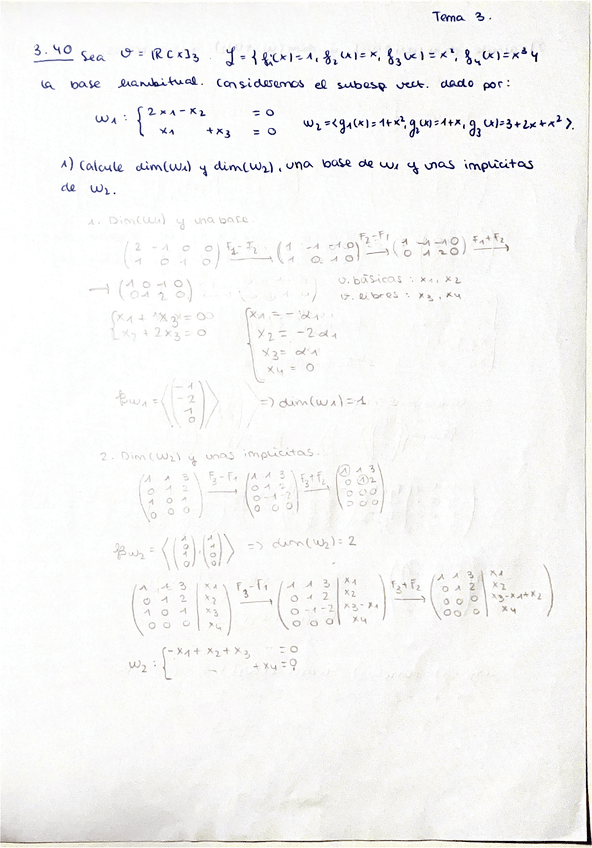 Tema 3.
3.40 Sea V = |R[x]3 . f = { f1(x) = 1, f2(x) = x, f3(x) = x², f4(x) = x³ }
la base . Consideremos el subesp vect. dado por:
W1 : { 2x1 - x2 = 0
x1 + x3 = 0
W2 = <g1(x) = 1+x², g2(x) = 1+x, g3(x) = 3+2x+x²>.
1) Calcule dim(W1) y dim(W2), una base de W1 y unas implícitas
de W2.
1. Dim(W1) y una base
(2 -1 0 0 / 1 0 1 0) F1-F2 → (1 -1 -1 0 / 1 0 1 0) F2-F1 → (1 -1 -1 0 / 0 1 2 0) F1+F2 →
→ (1 0 1 0 / 0 1 2 0) v. básicas : x1, x2
v. libres : x3, x4
x1 + x3 = 0
x2 + 2x3 = 0
x1 = -α1
x2 = -2α1
x3 = α1
x4 = 0
βW1 = <(-1 / -2 / 1 / 0)> => dim(W1) = 1
2. Dim(W2) y unas implícitas.
(1 1 3 / 0 1 2 / 1 0 1 / 0 0 0) F3-F1 → (1 1 3 / 0 1 2 / 0 -1 -2 / 0 0 0) F3+F2 → (1 1 3 / 0 1 2 / 0 0 0 / 0 0 0)
βW2 = <(1 / 0 / 1 / 0), (1 / 1 / 0 / 0)> => dim(W2) = 2
(1 1 3 | x1 / 0 1 2 | x2 / 1 0 1 | x3 / 0 0 0 | x4) F3-F1 → (1 1 3 | x1 / 0 1 2 | x2 / 0 -1 -2 | x3-x1 / 0 0 0 | x4) F3+F2 → (1 1 3 | x1 / 0 1 2 | x2 / 0 0 0 | x3-x1+x2 / 0 0 0 | x4)
W2 : { -x1 + x2 + x3 = 0
+ x4 = 0